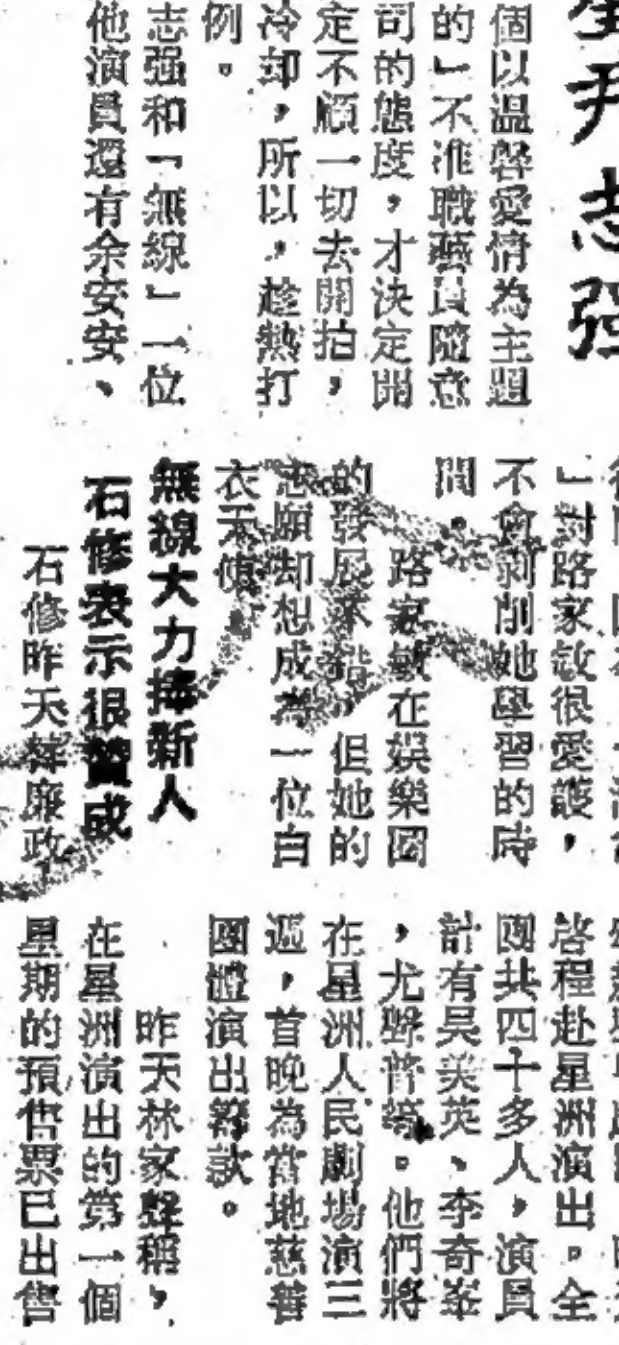 尹志强
個以溫馨愛情為主題
的」不准職藝員隨意
司的態度，才決定開
定不顧一切去開拍，
冷却，所以，趁熱打
例。
志强和「無線」一位
他演員還有余安安、
」對路家敏很愛護，
不會剝削她學習的時
間。
路家敏在娛樂圈
的發展不錯，但她的
志願却想成為一位白
衣天使。
無線大力捧新人
石修表示很贊成
石修昨天
廉政
啓程赴星洲演出。全
團共四十多人，演員
計有吳美英、李奇峯
，尤聲普
。他們將
在星洲人民劇場演三
週，首晚為當地慈善
團體演出籌款。
昨天林家聲稱，
在星洲演出的第一個
星期的預售票已出售